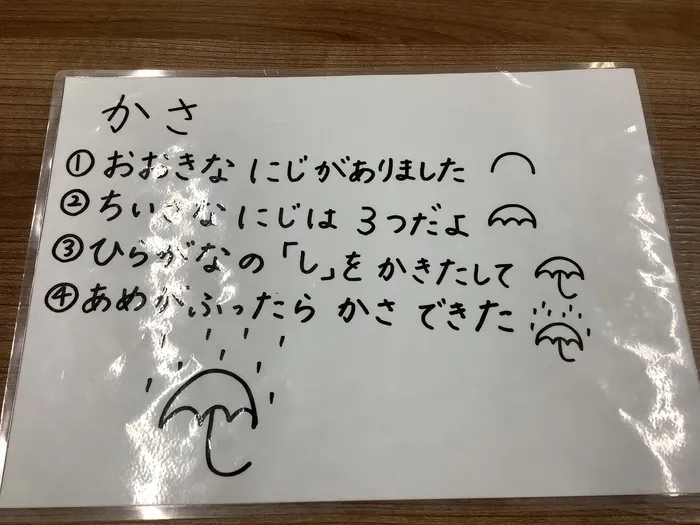 かさ
① おおきな にじがありました
② ちいさな にじは 3つだよ
③ ひらがなの「し」を かきたして
④ あめがふったら かさ できた